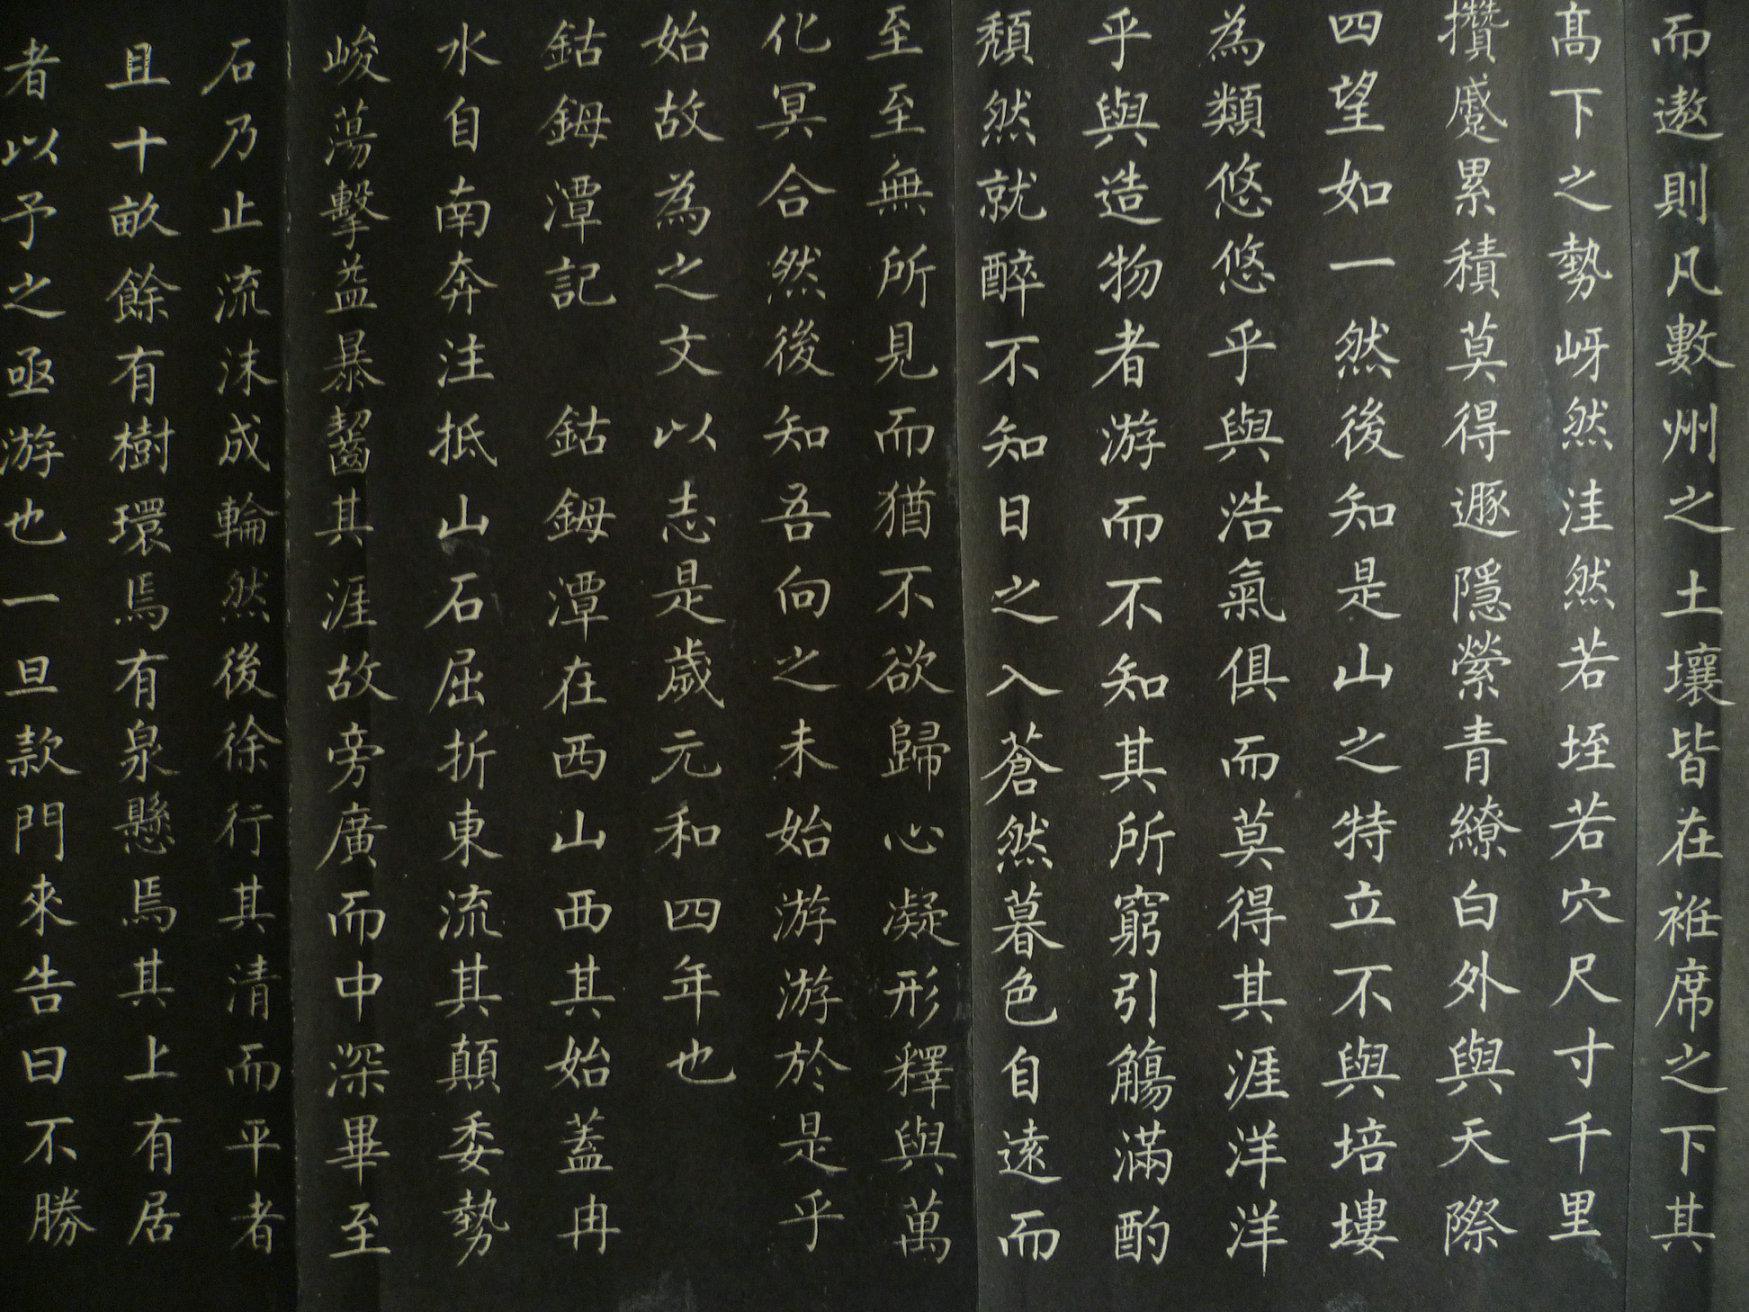 而遨則凡數州之土壤皆在袵席之下其
髙下之勢岈然洼然若垤若穴尺寸千里
攢蹙累積莫得遯隱縈青繚白外與天際
四望如一然後知是山之特立不與培塿
為類悠悠乎與浩氣俱而莫得其涯洋洋
乎與造物者游而不知其所窮引觴滿酌
頽然就醉不知日之入蒼然暮色自遠而
至至無所見而猶不欲歸心凝形釋與萬
化冥合然後知吾向之未始游游於是乎
始故為之文以志是歲元和四年也
鈷鉧潭記 鈷鉧潭在西山西其始蓋冉
水自南奔注抵山石屈折東流其顛委勢
峻蕩擊益暴齧其涯故旁廣而中深畢至
石乃止流沫成輪然後徐行其清而平者
且十畝餘有樹環焉有泉懸焉其上有居
者以予之亟游也一旦款門來告曰不勝